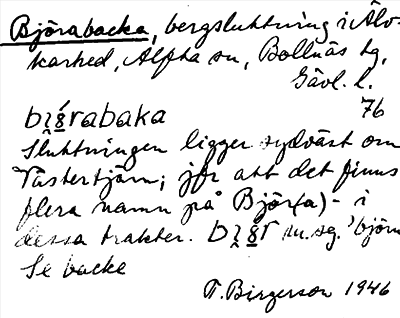 Björabacka, bergsluttning i Älv-
karhed, Alfta sn, Bollnäs tg,
Gävl. l.
76
bi̯ǿrabaka
Sluttningen ligger sydväst om
Västertjärn; jfr att det finns
flera namn på Björ(a)- i
dessa trakter. bi̯ør m.sg. 'björn
Se backe
T. Birgerson 1946